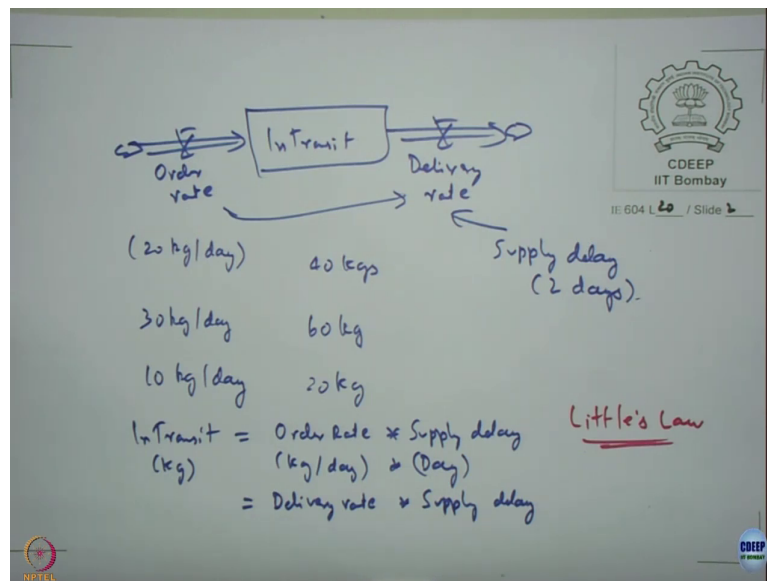 CDEEP
IIT Bombay
IE 604 L 20 / Slide 2
InTransit
Order
rate
Delivery
rate
Supply delay
(2 days).
(20 kg/day) 40 kgs
30 kg/day 60 kg
10 kg/day 20 kg
InTransit = Order Rate * Supply delay
(kg) (kg/day) * (Day)
= Delivery rate * Supply delay
Little's Law
NPTEL
CDEEP
IIT BOMBAY